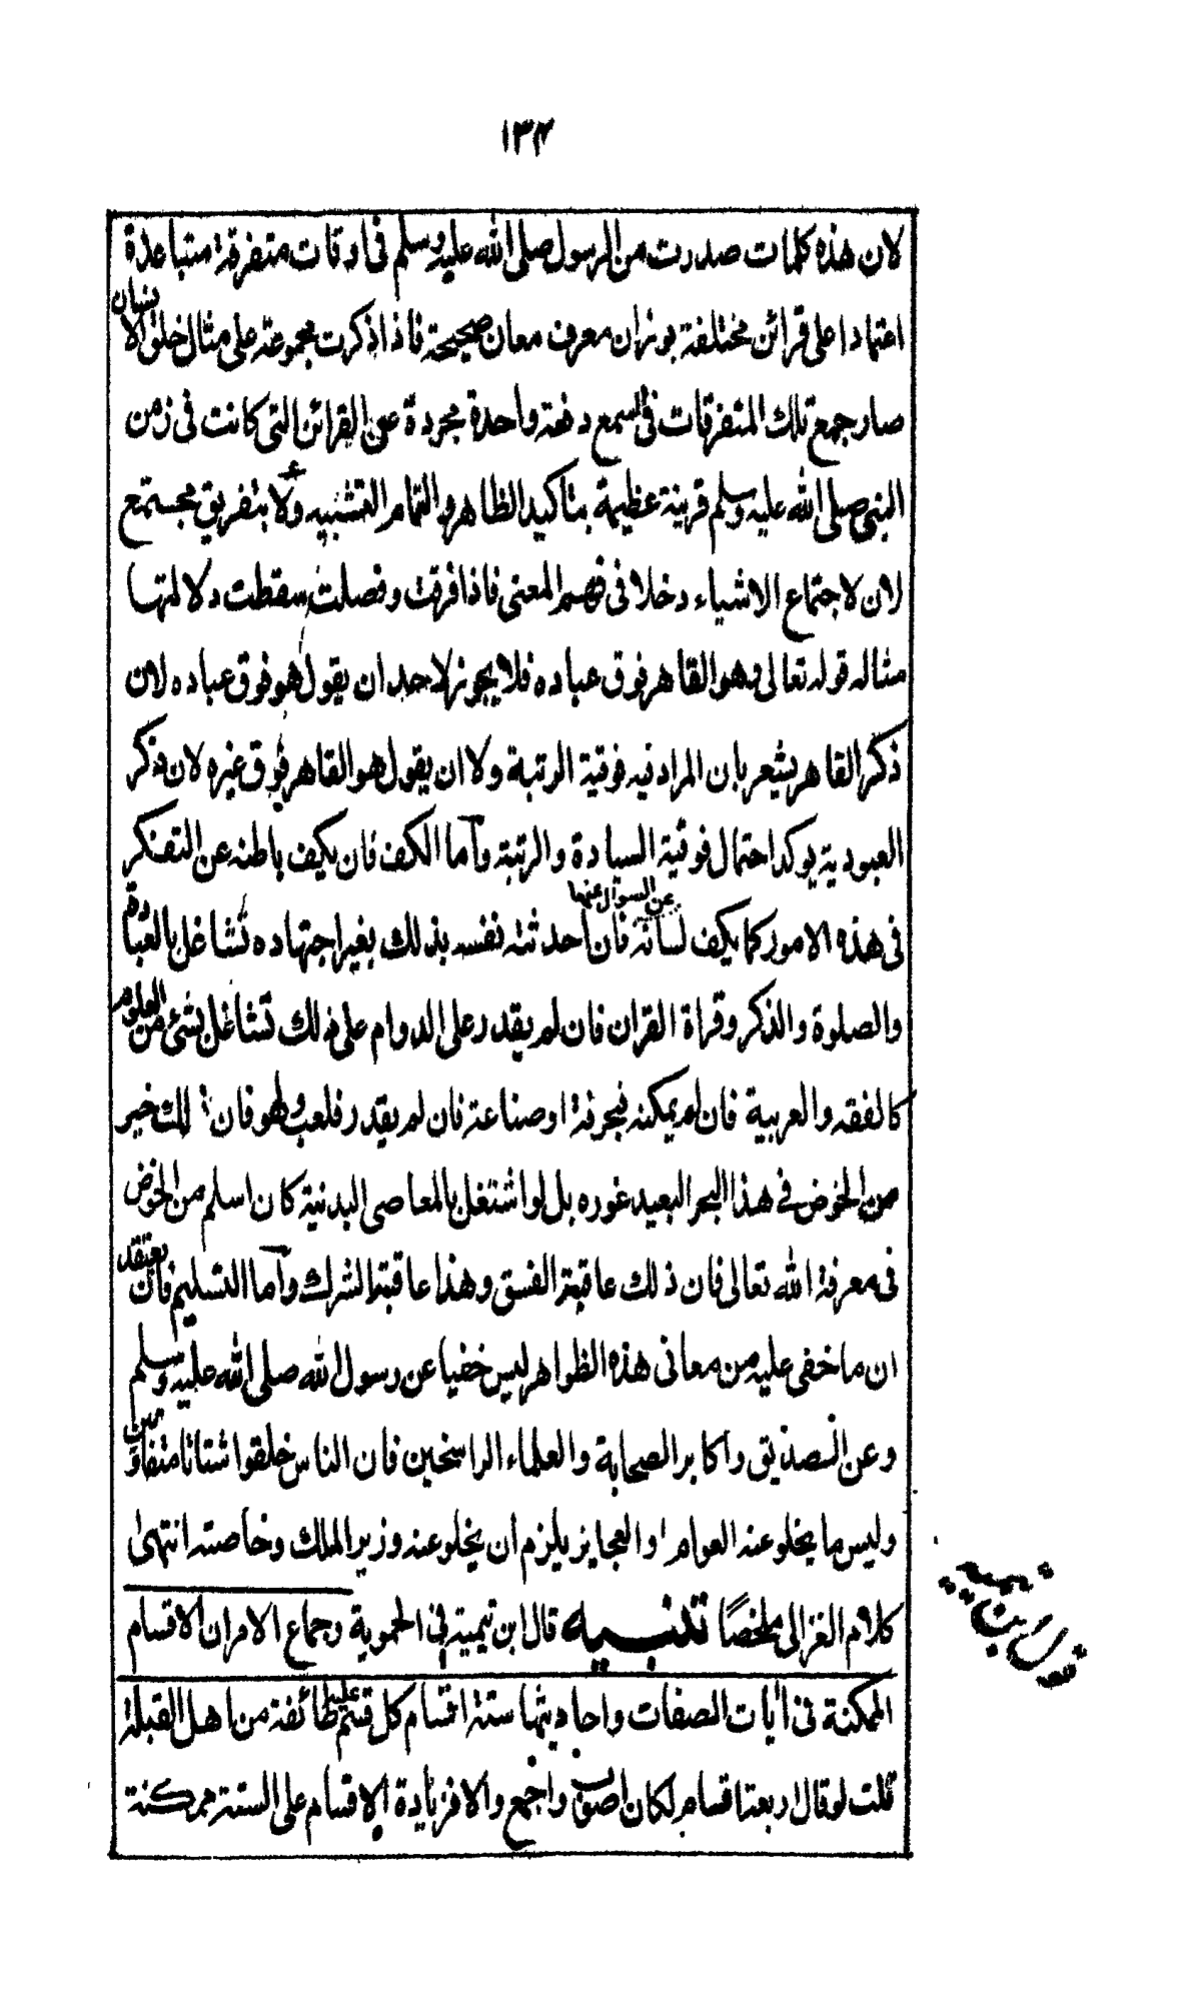 ۱۳۴
لان هذه كلمات صدرت من الرسول صلى الله عليه وسلم فى اوقات متفرقة متباعدة
اعتمادا على قرائن مختلفة بوزان معرف معان صحيحة فاذا ذكرت مجموعة على مثال خلق الانسان
صار جمع تلك المتفرقات فى السمع دفعة واحدة مجردة عن القرائن التى كانت فى زمن
النبى صلى الله عليه وسلم قرينة عظيمة بتاكيد الظاهر والتمام التشبيه ولا بتفريق مجتمع
لان لاجتماع الاشياء دخلا فى فهم المعنى فاذا فرقت وفصلت سقطت دلالتها
مثاله قوله تعالى وهو القاهر فوق عباده فلا يجوز لاحد ان يقول هو فوق عباده لان
ذكر القاهر يشعر بان المراد فيه فوقية الرتبة ولا ان يقول هو القاهر فوق غيره لان ذكر
العبودية يوكد احتمال فوقية السيادة والرتبة وآما الكف فان يكف باطنه عن التفكر
فى هذه الامور كما يكف لسانه عن السوال عنها فان احدثته نفسه بذلك بغير اجتهاده تشاغل بالعبادة
والصلوة والذكر وقراة القران فان لم يقدر على الدوام على ذلك تشاغل بشئ من العلوم
كالفقه والعربية فان لم يمكنه فبحرفة او صناعة فان لم يقدر فلعب ولهو فان ذلك خير
من الخوض فى هذا البحر البعيد غوره بل لو اشتغل بالمعاصى البدنية كان اسلم من الخوض
فى معرفة الله تعالى فان ذلك عاقبته الفسق وهذا عاقبته الشرك وآما التسليم فان يعتقد
ان ما خفى عليه من معانى هذه الظواهر ليس خفيا عن رسول الله صلى الله عليه وسلم
وعن الصديق واكابر الصحابة والعلماء الراسخين فان الناس خلقوا شتاتا متفاوتين
وليس ما يخلو عنه العوام او العجايز يلزم ان يخلو عنه وزير الملك وخاصته انتهى
كلام الغزالى ملخصًا تنبيه قال ابن تيمية فى الحموية وجماع الامران الاقسام
الممكنة فى ايات الصفات واحاديثها ستة اقسام كل قسم عليه طائفة من اهل القبلة
قلت لو قال اربعة اقسام لكان اصوب واجمع والا فزيادة الاقسام على الستة ممكنة
قول ابن تيميه